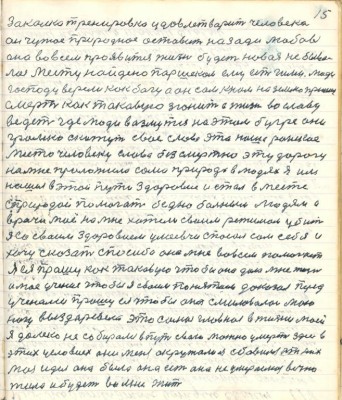 15
Закалка тренировка удовлетварит человека
он чужое природное оставит назади любов
она вовсем проявится жить будет новая не быва-
лая место найдено паршеком ему гимн люди
господу верели как богу а он сам к нам на землю пришел
смерть как такавую згонит а жизнь во славу
ведет где люди возмутся на этом бугре они
громко скажут свое слово это наше райское
место человеку слава безсмертно эту дорогу
на мне приложила сама природа в людях я их
нашел в этом пути Здоровие и стал в месте
с природой помогать бедно больным людям а
врачи мое на мне хотели своим режимом убить
я со своим Здоровием умеючи спасал сам себя и
хочу сказать спосибо она мне вовсем помогает
Я ея прошу как такавую чтобы она дала мне жизнь
и мое учение чтобы я своим понятием доказал перед
учеными прошу ея чтобы она смиловалась мою
ногу выздаравела это самое главное в жизни моей
Я далеко не собирался в путь свой можно умереть здесь в
этих условиях они меня окружали с бавили на них
моя идея она была она есть она не умираема вечно
жила и будет во мне жить